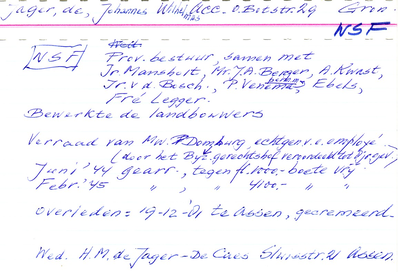 Jager, de, Johannes Wilhelmus ACC. O.Botstr. 29 Gron.
NSF
NSF Prov. bestuur, samen met
Ir. Mansholt, Mr. J.A. Berger, A. Kwast,
Jr. v.d. Bosch., P. Venema, Ebels,
Fré Legger.
Bewerkte de landbouwers
Verraad van Mw. Domburg, echtgen. v.e. employé
(door het Byz. gerechtshof veroordeeld tot 5 jr. gev.)
Juni '44 gearr., tegen fl. 1000.- boete vrij
Febr. '45 " " " 4100.- " "
overleden = 19-12-'01 te Assen, gecremeerd.
Wed. H.M. de Jager - De Caes Sluisstr. 21 Assen.